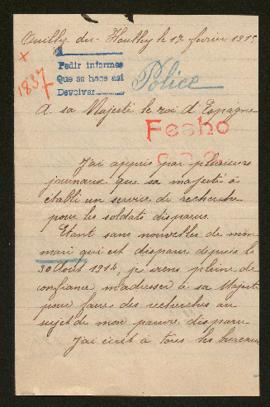 du Houlley le 12 février 1915
Pedir informes
Que se hace así
Devolver
1837
Police
A sa Majesté le roi d'Espagne
Fecho
J'ai appris par plusieurs
journaux que sa majesté à
établi un service de recherche
pour les soldats disparus.
Etant sans nouvelles de mon
mari qui est disparu depuis le
30 Août 1914, je viens pleine de
confiance m'adresser à sa Majesté
pour faire des recherches au
sujet de mon pauvre disparu
J'ai écrit à tous les bureaux